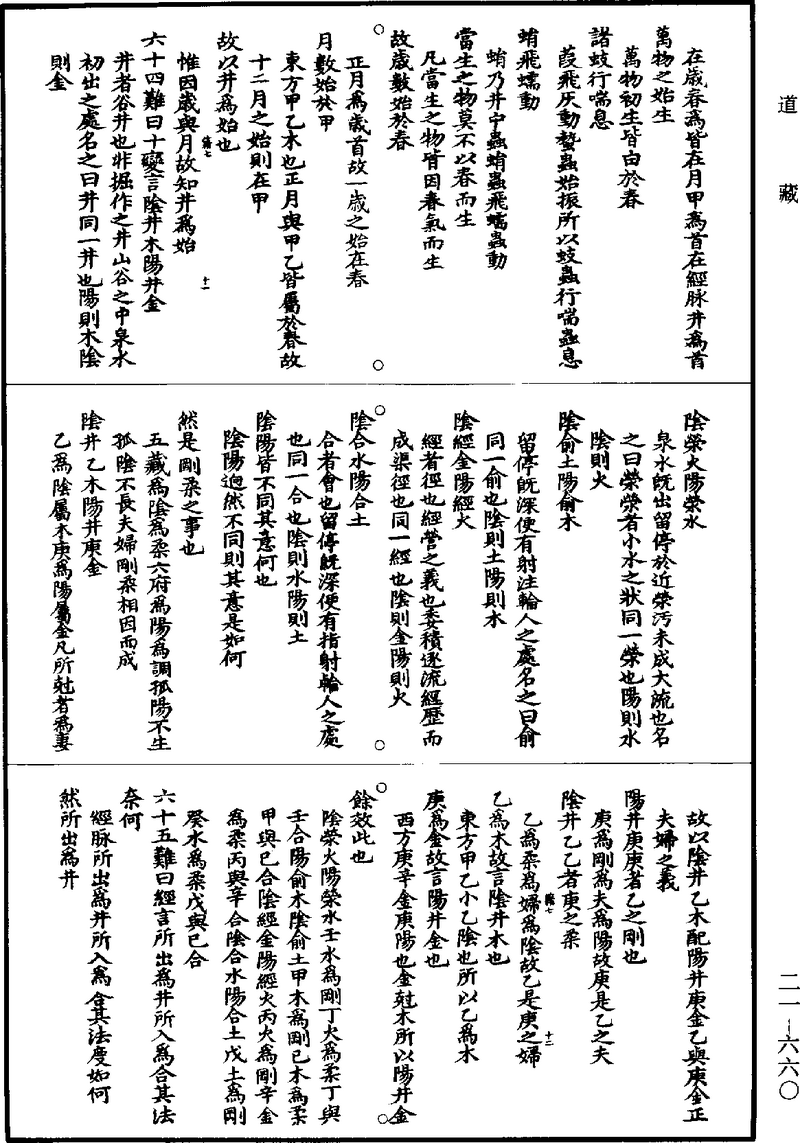 道藏
在歲春爲皆在月甲爲首在經脉井爲首
萬物之始生
萬物初生皆由於春
諸蚑行喘息
葭飛灰動蟄蟲始振所以蚑蟲行喘蟲息
蜎飛蠕動
蜎乃井中蟲蜎蟲飛蠕蟲動
當生之物莫不以春而生
凡當生之物皆因春氣而生
故歲數始於春
正月爲歲首故一歲之始在春
月數始於甲
東方甲乙木也正月與甲乙皆屬於春故
十二月之始則在甲
故以井爲始也
惟因歲與月故知井爲始
六十四難曰十變言陰井木陽井金
井者谷井也非掘作之井山谷之中泉水
初出之處名之曰井同一井也陽則木陰
則金
陰滎火陽滎水
泉水旣出留停於近滎汚未成大流也名
之曰滎滎者小水之狀同一滎也陽則水
陰則火
陰俞土陽俞木
留停旣深便有射注輪人之處名之曰俞
同一俞也陰則土陽則木
陰經金陽經火
經者徑也經營之義也委積逐流經歷而
成渠徑也同一經也陰則金陽則火
陰合水陽合土
合者會也留停旣深便有指射輪人之處
也同一合也陰則水陽則土
陰陽皆不同其意何也
陰陽逈然不同則其意是如何
然是剛柔之事也
五藏爲陰爲柔六府爲陽爲調孤陽不生
孤陰不長夫婦剛柔相因而成
陰井乙木陽井庚金
乙爲陰屬木庚爲陽屬金凡所尅者爲妻
故以陰井乙木配陽井庚金乙與庚金正
夫婦之義
陽井庚庚者乙之剛也
庚爲剛爲夫爲陽故庚是乙之夫
陰井乙乙者庚之柔
乙爲柔爲婦爲陰故乙是庚之婦
乙爲木故言陰井木也
東方甲乙小乙陰也所以乙爲木
庚爲金故言陽井金也
西方庚辛金庚陽也金尅木所以陽井金
餘效此也
陰滎火陽滎水壬水爲剛丁火爲柔丁與
壬合陽俞木陰俞土甲木爲剛已木爲柔
甲與已合陰經金陽經火丙火爲剛辛金
爲柔丙與辛合陰合水陽合土戊土爲剛
癸水爲柔戊與已合
六十五難曰經言所出爲井所入爲合其法
奈何
經脉所出爲井所入爲合其法度如何
然所出爲井
二一-六六〇